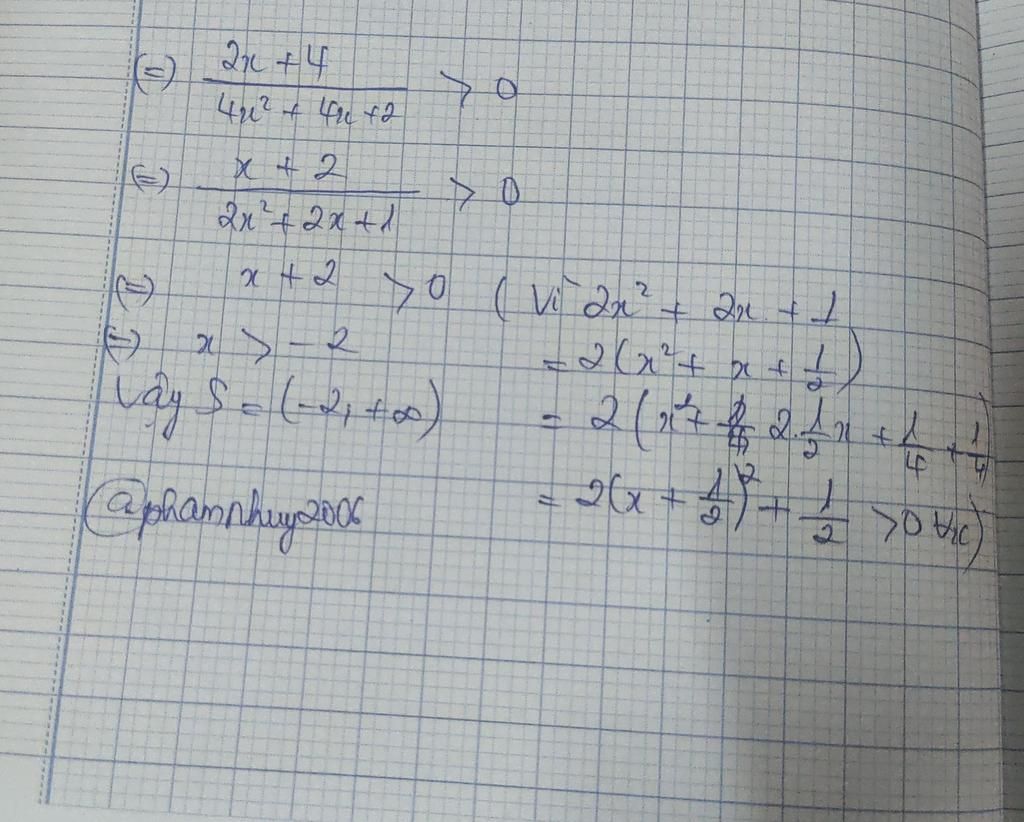 (=) 2x + 4 / 4x² + 4x + 2 > 0
(=) x + 2 / 2x² + 2x + 1 > 0
(=) x + 2 > 0 ( Vì 2x² + 2x + 1
(=) x > -2 = 2(x² + x + 1/2)
Vậy S = (-2, +∞) = 2(x² + 2.1/2x + 1/4 + 1/4)
@phamnhuy2006 = 2(x + 1/2)² + 1/2 > 0 ∀x)